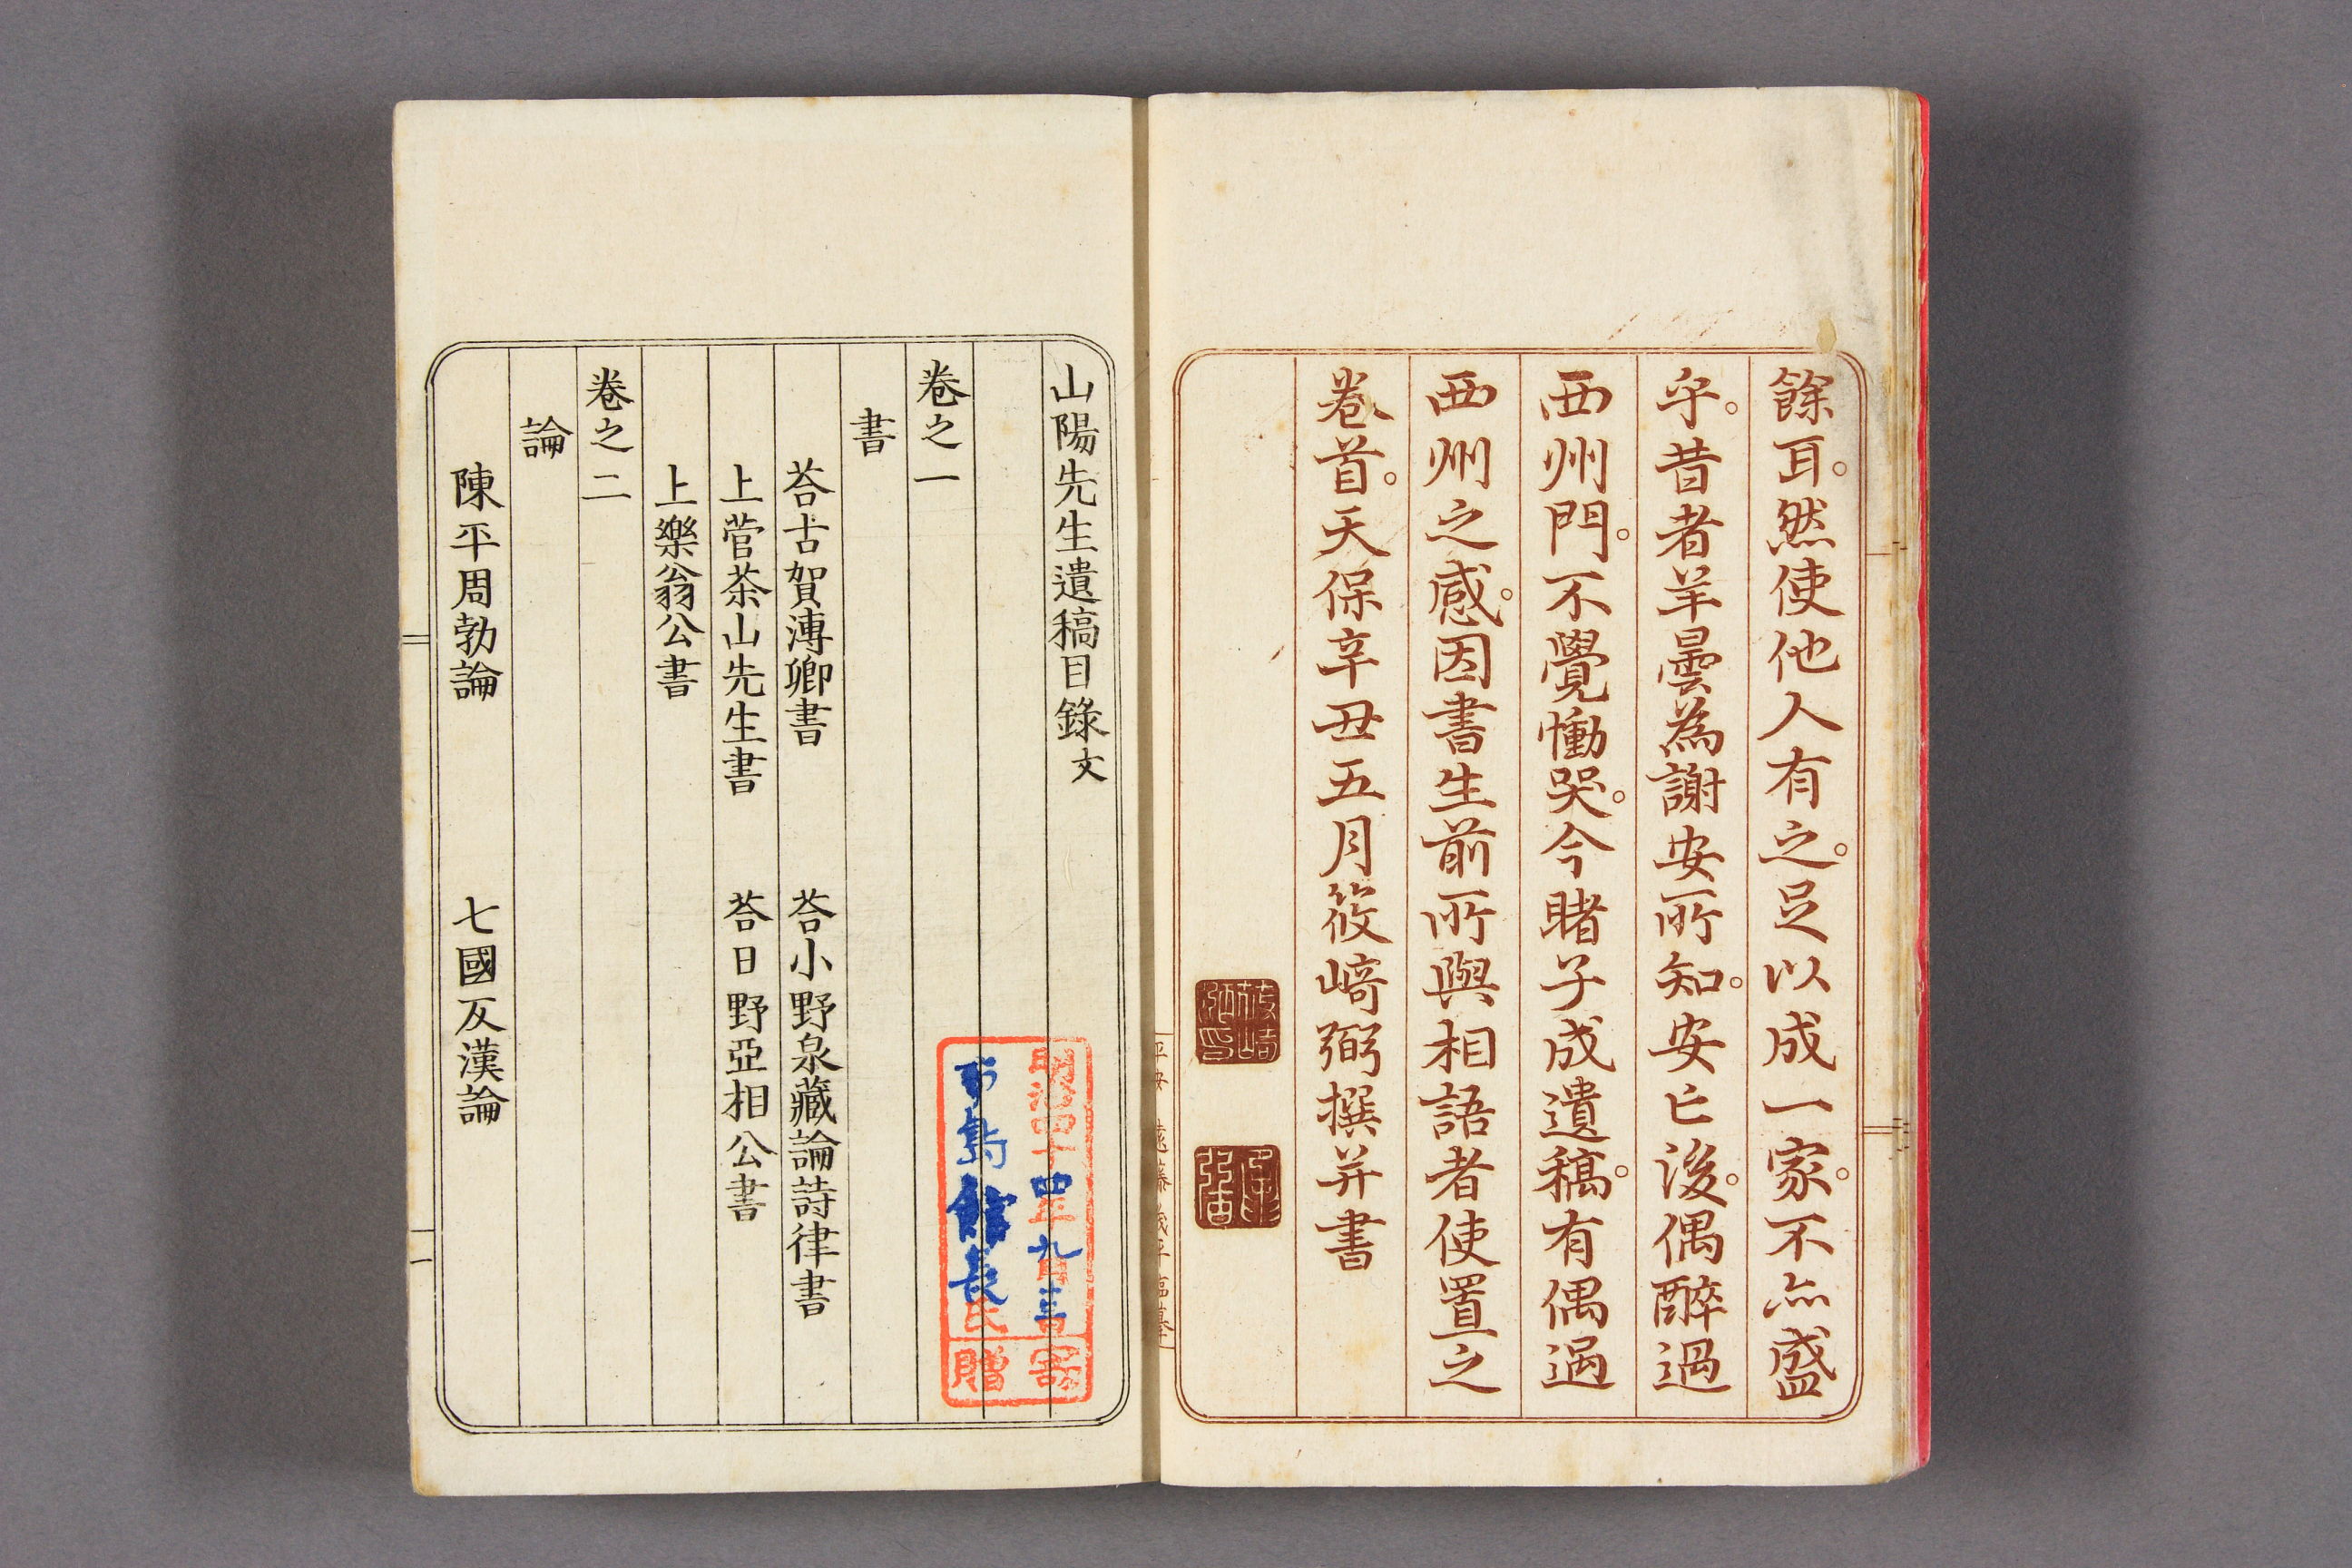 餘耳。然使他人有之。足以成一家。不亦盛
乎。昔者羊曇為謝安所知。安亡後。偶醉過
西州門。不覺慟哭。今睹子成遺稿。有偶過
西州之感。因書生前所與相語者使置之
卷首。天保辛丑五月筱﨑弼撰并書
山陽先生遺稿目錄文
卷之一
書
荅古賀溥卿書
荅小野泉藏論詩律書
上菅茶山先生書
荅日野亞相公書
上樂翁公書
卷之二
論
陳平周勃論
七國反漢論
明治四十四年九月三日寄
市島館長氏
贈